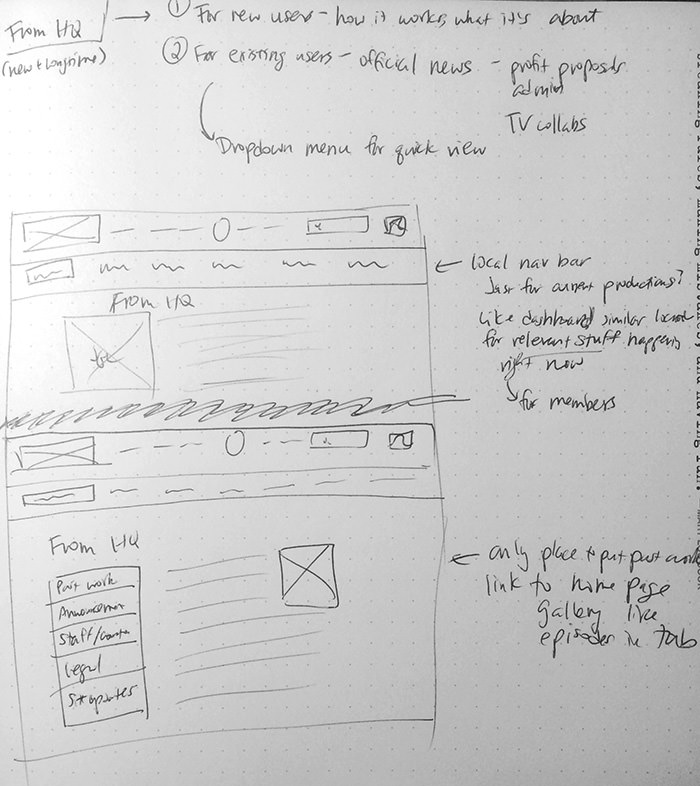 From HQ
(new + longtime)
① For new users - how it works, what it's about
② For existing users - official news - profit proposals
admin
TV collabs
Dropdown menu for quick view
local nav bar
Just for current productions?
Like dashboard similar
for relevant stuff happening
right now
for members
From HQ
txt
From HQ
Past work
Announcement
Staff/
Legal
Site updates
only place to put past work
link to home page
gallery like
episodes in tab